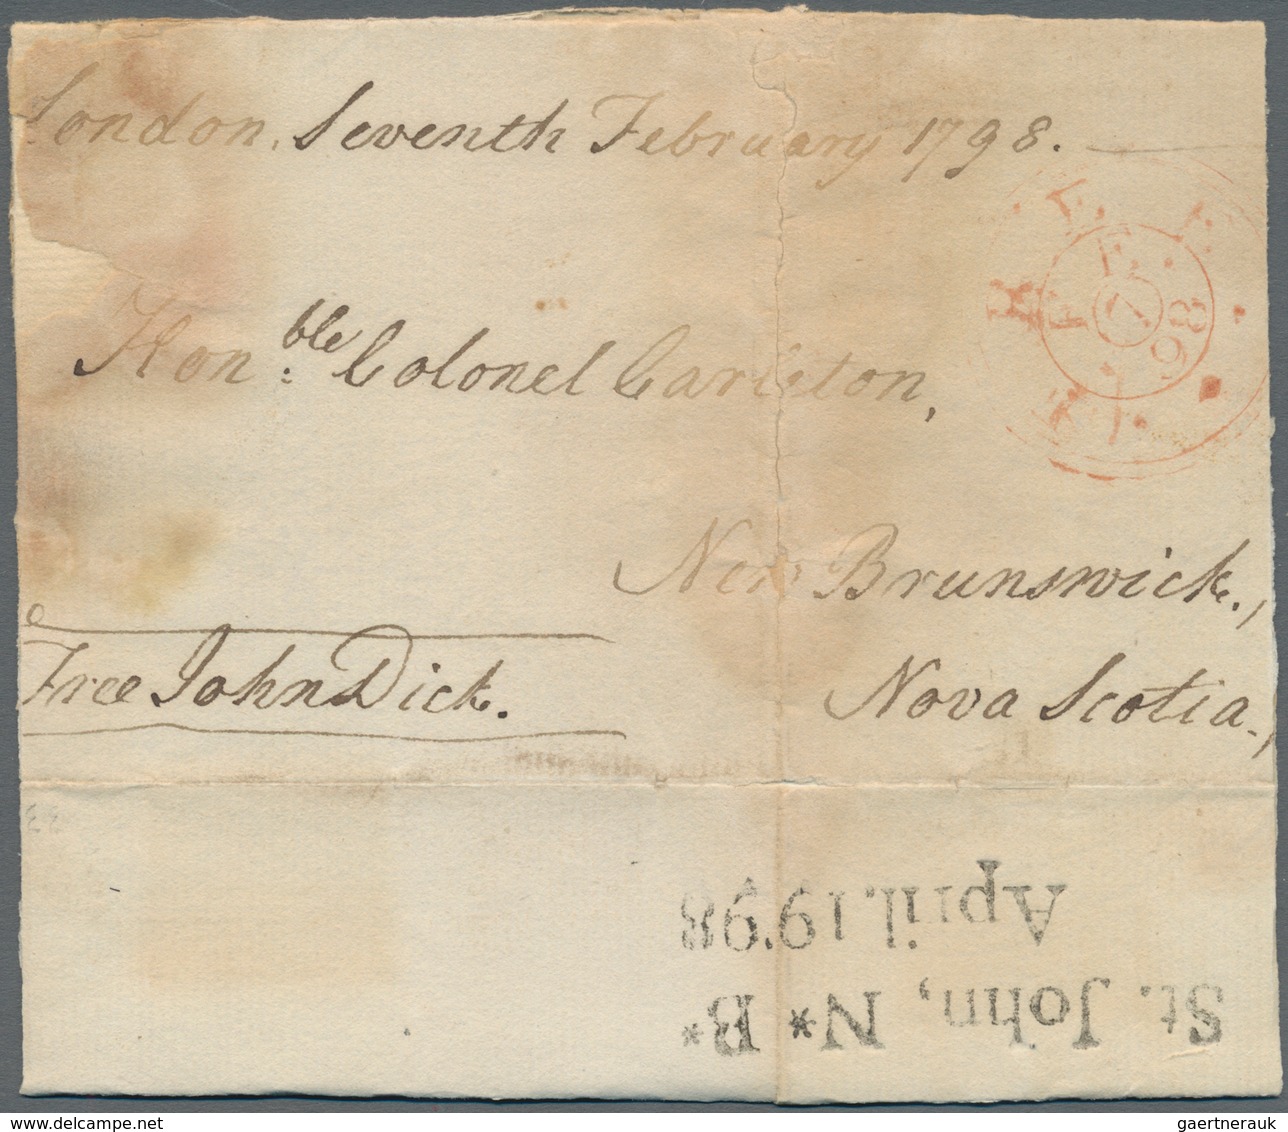 London, Seventh February 1798.
Hon:ble Colonel Carleton,
New Brunswick.,
Nova Scotia.,
Free John Dick.
F R E E
FE. 7 98
St. John, N* B*
April.19'98
gaertnerauk